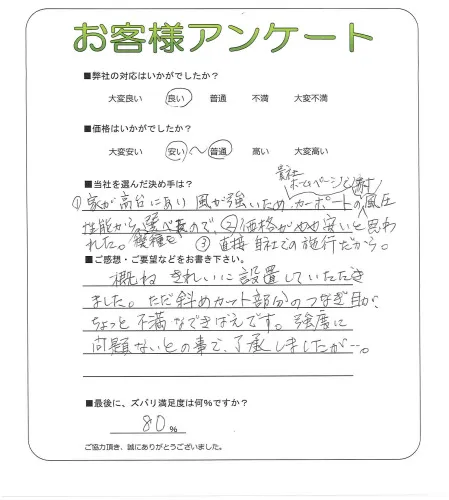 お客様アンケート
■弊社の対応はいかがでしたか?
大変良い 良い 普通 不満 大変不満
■価格はいかがでしたか?
大変安い 安い 〜 普通 高い 大変高い
■当社を選んだ決め手は?
貴社ホームページで
①家が高台にあり 風が強いため カーポートの耐風圧
性能から機種を選べるので、②価格がやや安いと思わ
れた。 ③直接自社での施行だから。
■ご感想・ご要望などをお書き下さい。
概ね きれいに設置していただき
ました。ただ斜めカット部分のつなぎ目が、
ちょっと不満なできばえです。強度に
問題ないとの事で、了承しましたが…。
■最後に、ズバリ満足度は何%ですか?
80 %
ご協力頂き、誠にありがとうございました。